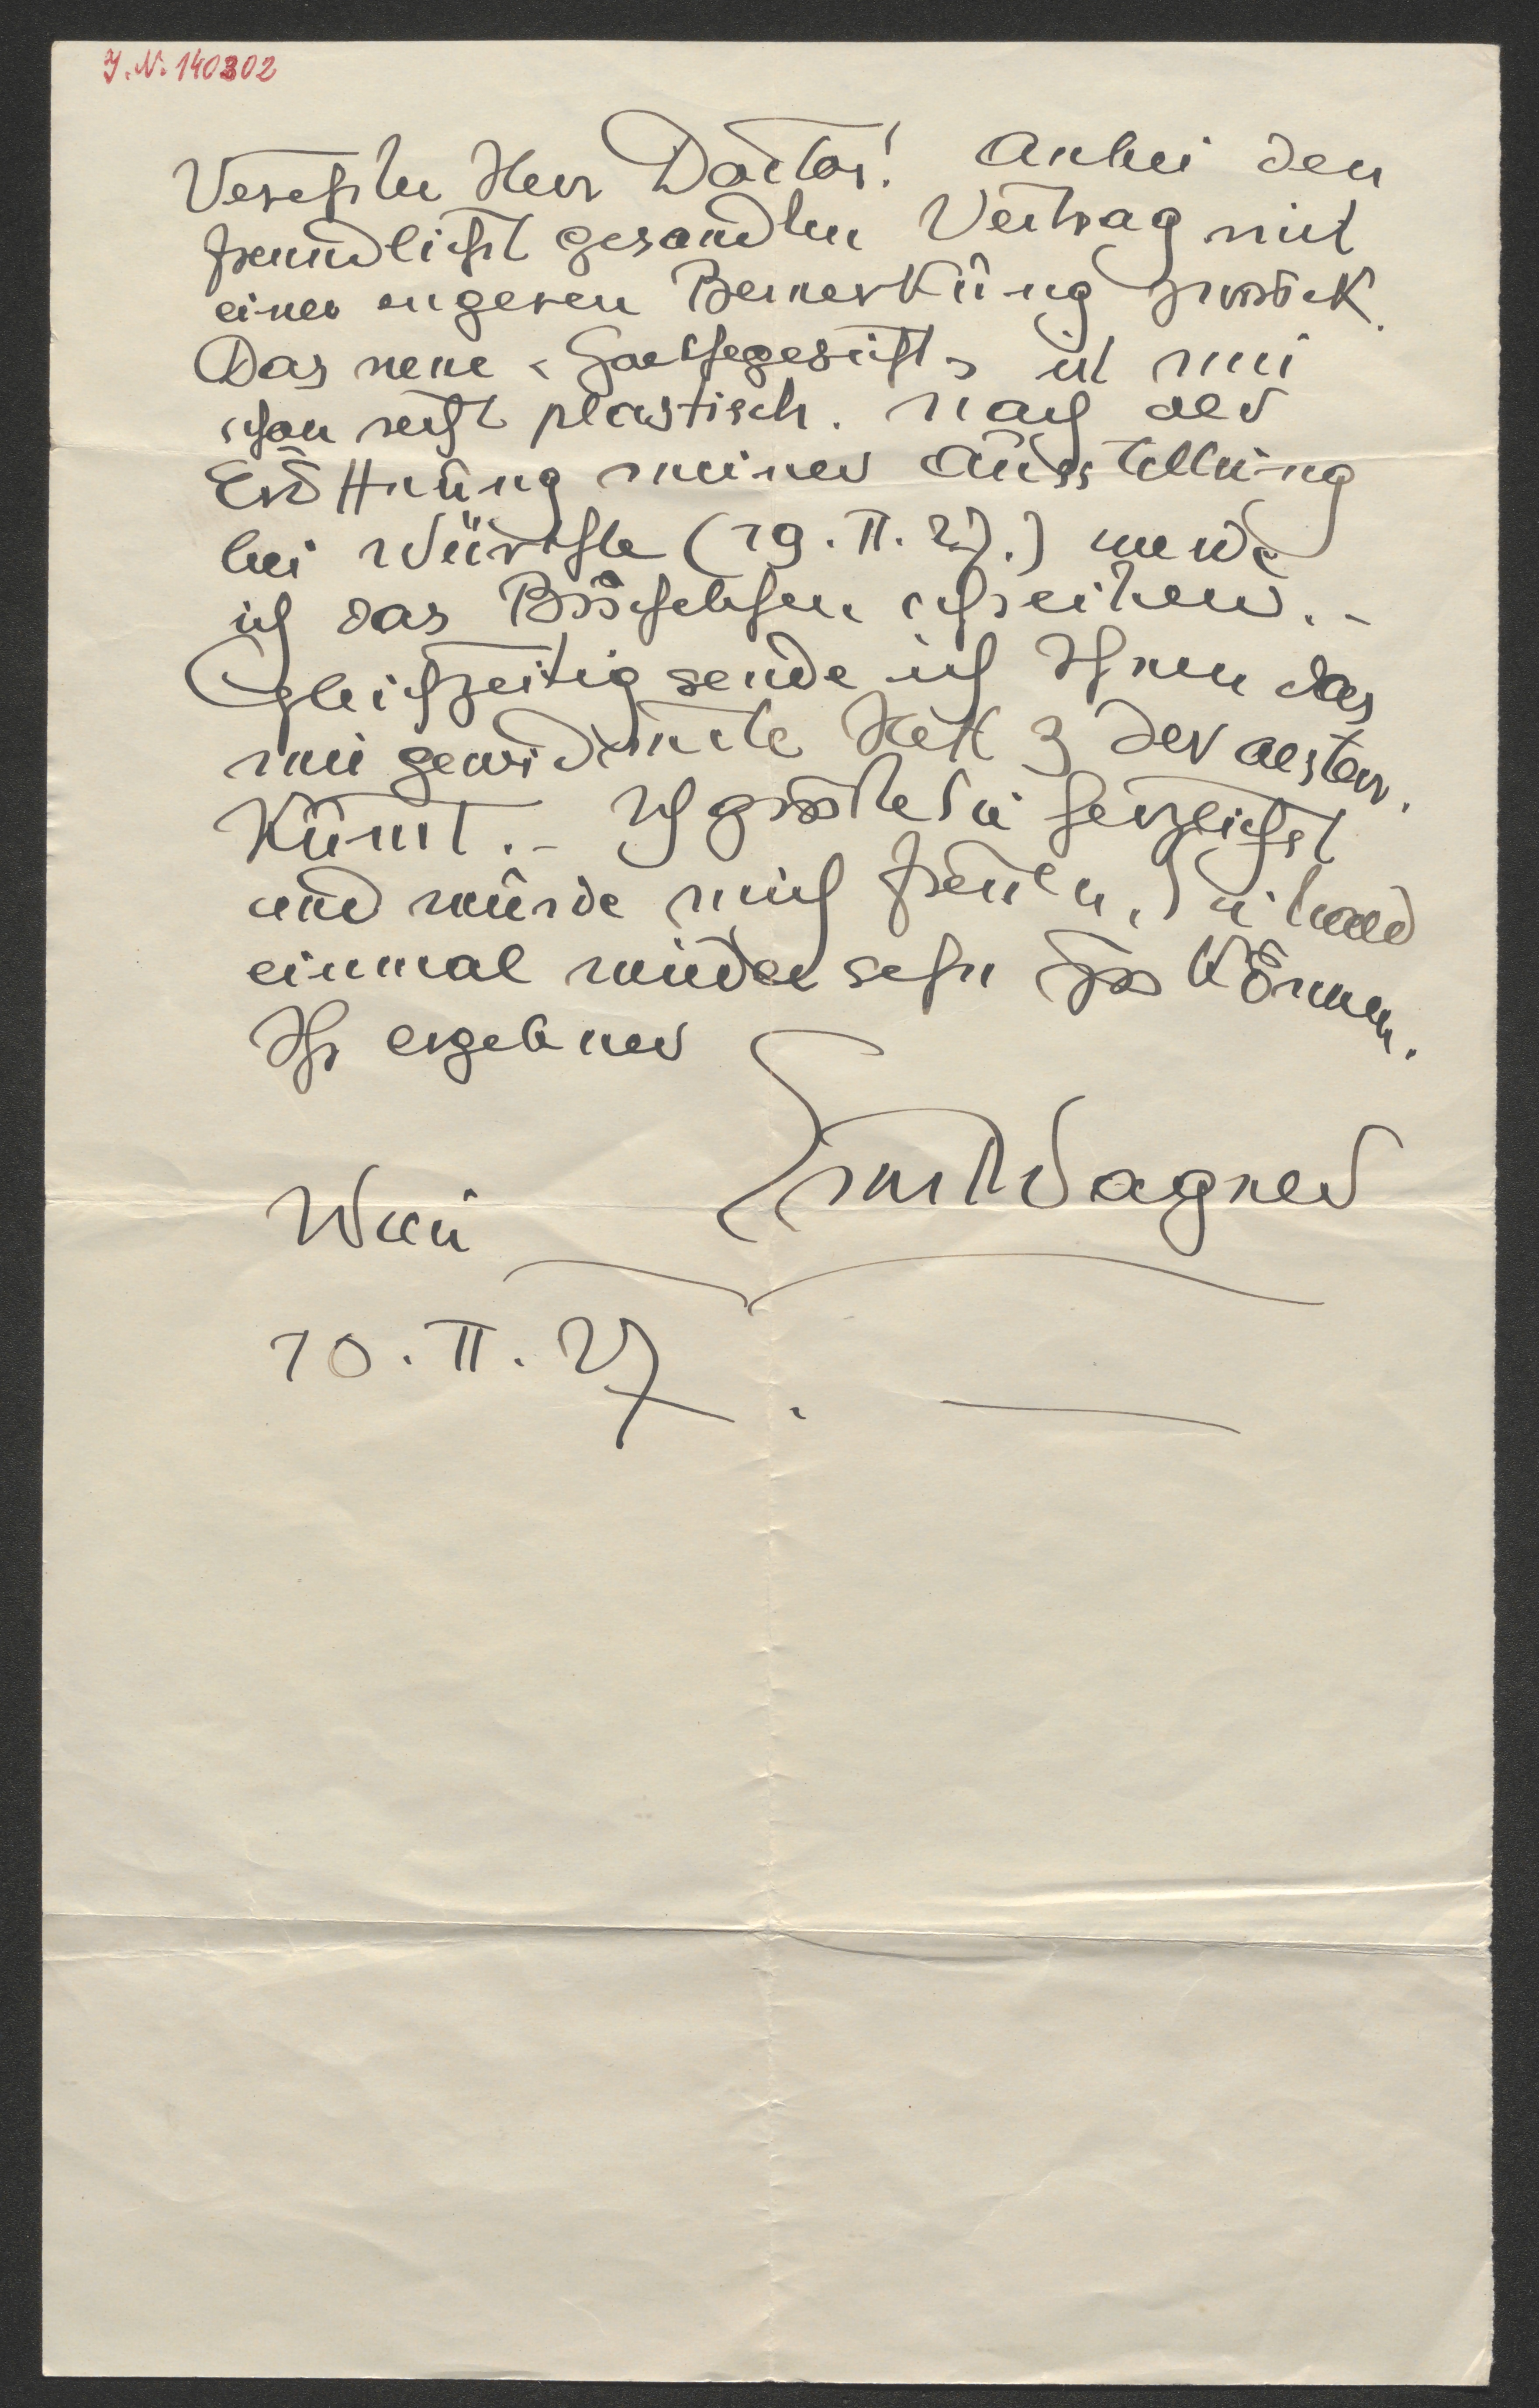 J.N. 140302
Verehrter Herr Doctor! Anbei den
freundlichst gesandten Vertrag mit
einer engeren Bemerkung zurück.
Das neue « Goethegesicht » ist mir
schon recht plastisch. Nach der
Eröffnung meiner Ausstellung
bei Würthle (19. II. 27.) werde
ich das Büchelchen schreiben. –
Gleichzeitig sende ich Ihnen das
mir gewidmete Heft 3 der oesterr.
Kunst. – Ich grüsse Sie herzlichst
und würde mich freuen, Sie bald
einmal wieder sehn zu können.
Ihr ergebner
Ernst Wagner
Wien
10. II. 27.